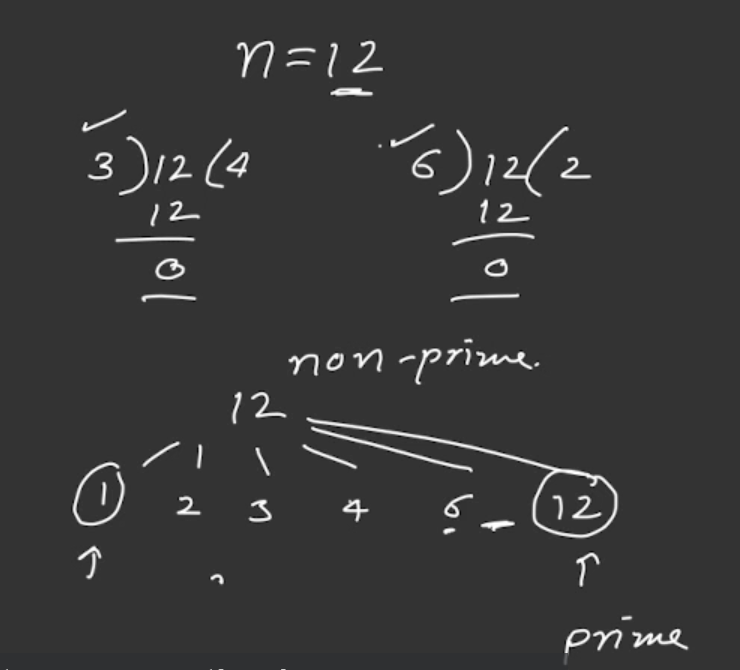 n=12
3)12(4 6)12(2
12 12
0 0
non-prime.
12
1 2 3 4 6 12
prime